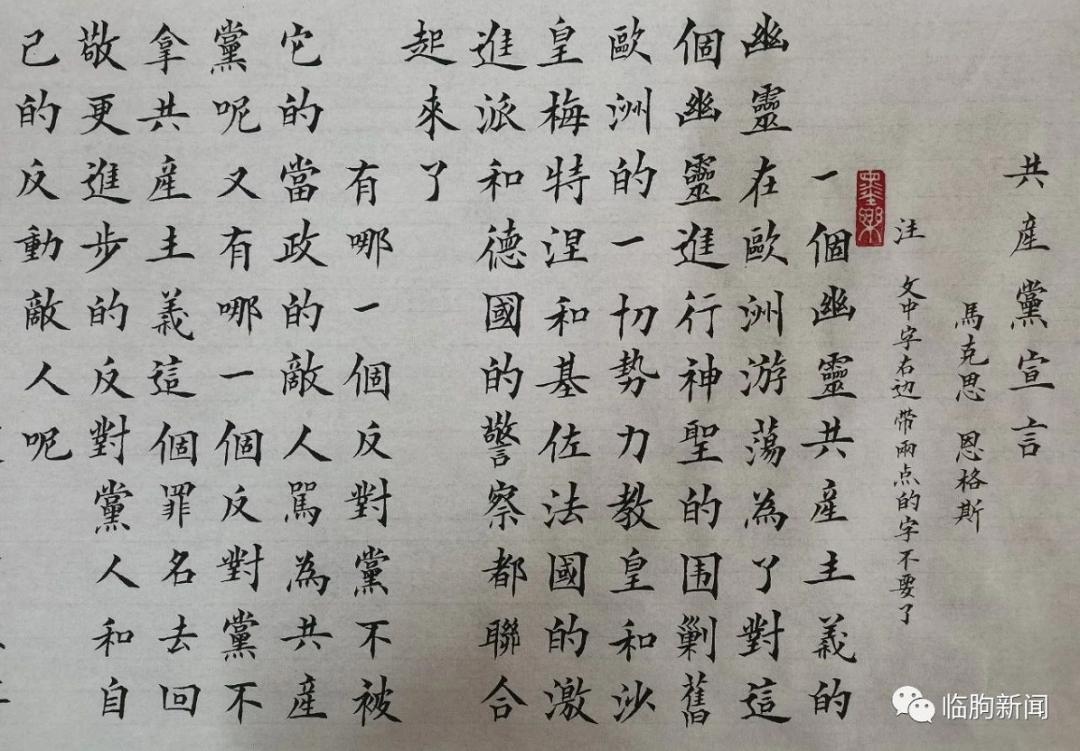 共產黨宣言
馬克思 恩格斯
注 文中字右边带兩点的字不要了
一個幽靈共產主義的
幽靈在歐洲游蕩為了對這
個幽靈進行神聖的围剿舊
歐洲的一切勢力教皇和沙
皇梅特涅和基佐法國的激
進派和德國的警察都聯合
起來了
有哪一個反對黨不被
它的當政的敵人駡為共產
黨呢又有哪一個反對黨不
拿共產主義這個罪名去回
敬更進步的反對黨人和自
己的反動敵人呢
临朐新闻